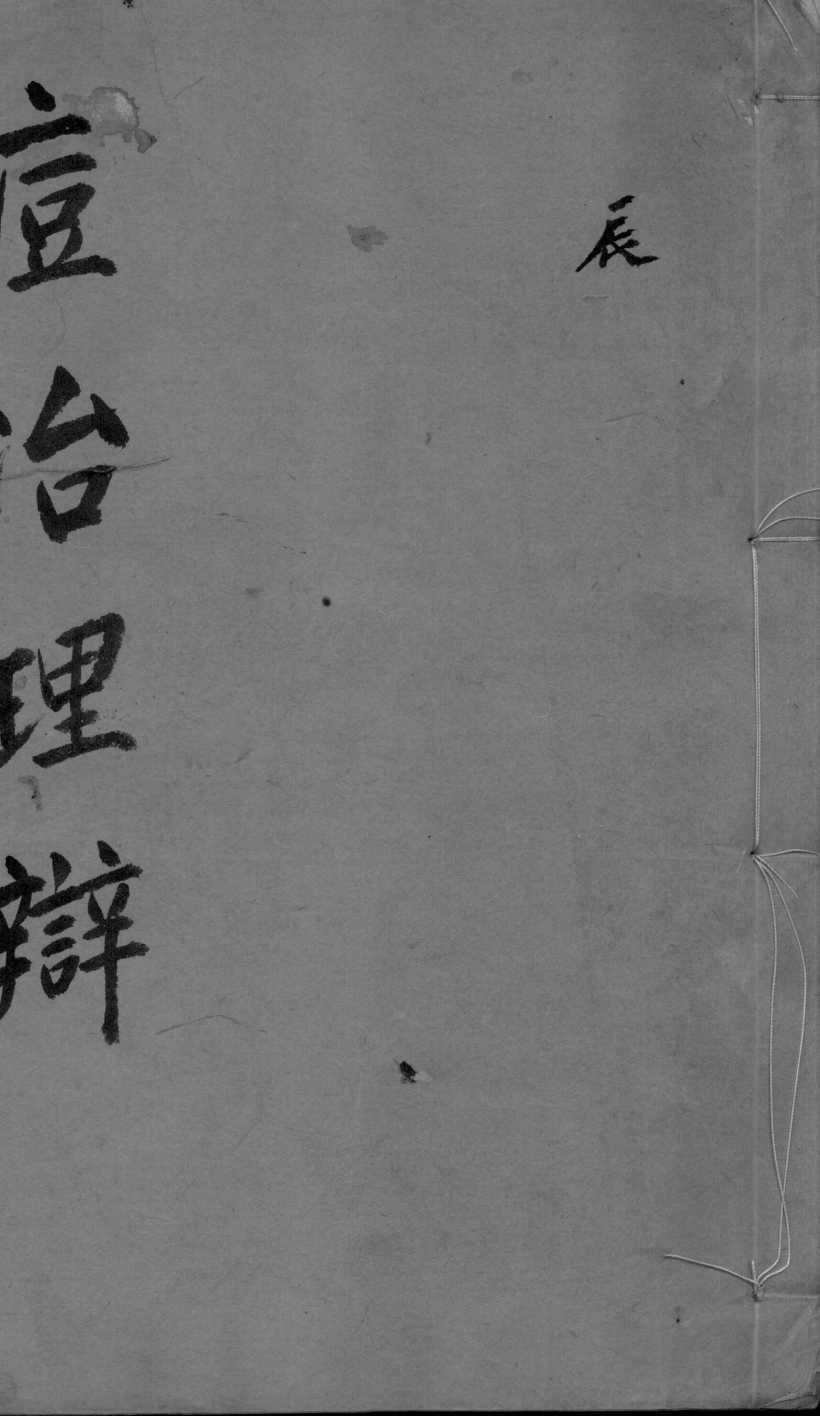 辰
痘治理辯